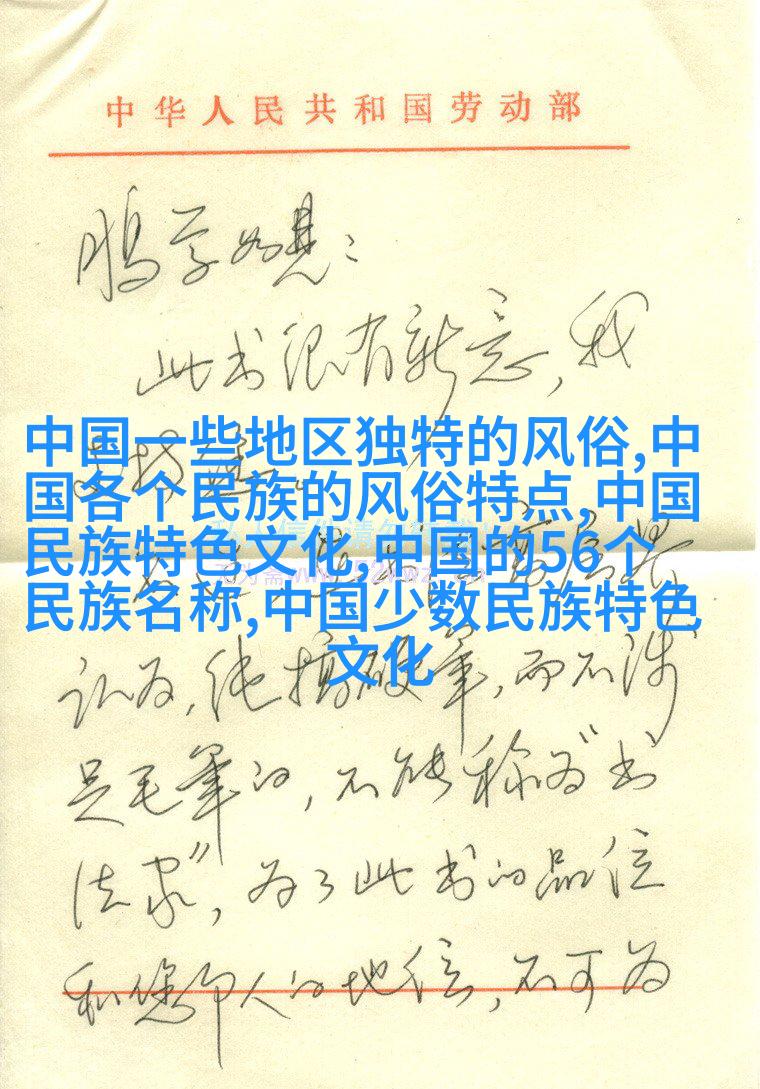 中华人民共和国劳动部
如晤:
此书很有新意,我
中国一些地区独特的风俗,中
国各个民族的风俗特点,中国
民族特色文化,中国的56个
民族名称,中国少数民族特色
文化
认为,纯搞硬筆,而不涉
足毛筆的,不能称为"书
法家",为了此书的品位
和您人的地位,不可为